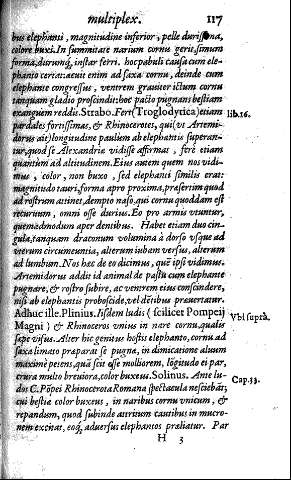 multiplex. 117
bus elephanti, magnitudine inferior, pelle durissima,
colore buxi. In summitate narium cornu gerit, simum
forma, durumq; instar ferri. hoc pabuli causa cum ele-
phanto certat: acuit enim ad saxa cornu, deinde cum
elephante congressus, ventrem grauiter ictum cornu
tanquam gladio proscindit: hoc pacto pugnans bestiam
exanguem reddit. Strabo. Fert (Troglodytica) etiam lib. 16.
pardales fortissimas, & Rhinocerotes, qui (vt Artemi-
dorus ait) longitudine paulùm ab elephantis superan-
tur, quod se Alexandriæ vidisse affirmat, ferè etiam
quantùm ad altitudinem. Eius autem quem nos vidi-
mus, color, non buxo, sed elephanti similis erat:
magnitudo tauri, forma apro proxima, præsertim quod
ad rostrum attinet, dempto naso, qui cornu quoddam est
recuruum, omni osse durius. Eo pro armis vtuntur,
quemadmodum aper dentibus. Habet etiam duo cin-
gula, tanquam draconum volumina à dorso vsque ad
ventrem circumeuntia, alterum iubam versus, alterum
ad lumbum. Nos hæc de eo dicimus, quē ipsi vidimus.
Artemidorus addit id animal de pastu cum elephante
pugnare, & rostro subire, ac ventrem eius conscindere,
nisi ab elephantis proboscide, vel dētibus præuertatur.
Adhuc ille. Plinius. Iisdem ludis (scilicet Pompeij Vbi suprà.
Magni) & Rhinoceros vnius in nare cornu, qualis
sæpe visus. Alter hic genitus hostis elephanto, cornu ad
saxa limato præparat se pugnæ, in dimicatione aluum
maximè petens, quā scit esse molliorem, lōgitudo ei par,
crura multo breuiora, color buxeus. Solinus. Ante lu- Cap. 33.
dos C. Pōpei Rhinocerota Romana spectacula nesciebāt,
cui bestiæ color buxeus, in naribus cornu vnicum, &
repandum, quod subinde attritum cautibus in mucro-
nem excitat, eoq; aduersus elephantos præliatur. Par
H 3